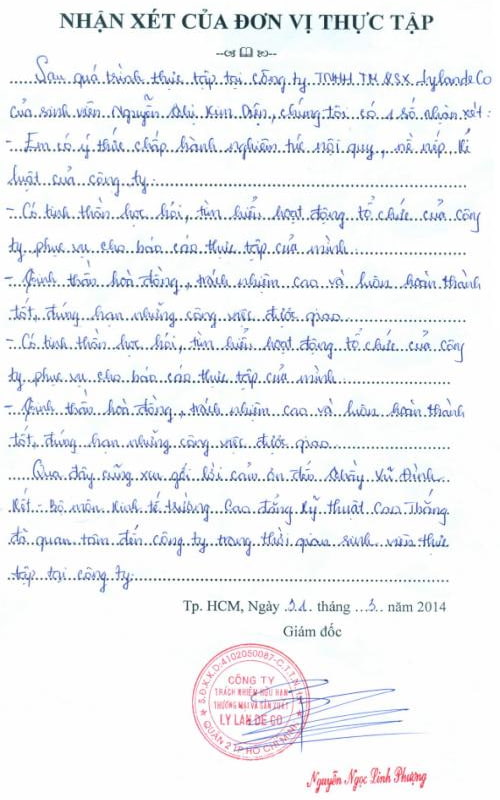 NHẬN XÉT CỦA ĐƠN VỊ THỰC TẬP
Sau quá trình thực tập tại công ty TNHH TM & SX Lylandeco
của sinh viên Nguyễn Thị Kim Diện, chúng tôi có 1 số nhận xét:
- Em có ý thức chấp hành nghiêm túc nội quy, nề nếp, kỉ
luật của công ty.
- Có tinh thần học hỏi, tìm hiểu hoạt động tổ chức của công
ty phục vụ cho báo cáo thực tập của mình.
- Tinh thần hoà đồng, trách nhiệm cao và luôn hoàn thành
tốt, đúng hạn những công việc được giao.
- Có tinh thần học hỏi, tìm hiểu hoạt động tổ chức của công
ty phục vụ cho báo cáo thực tập của mình.
- Tinh thần hoà đồng, trách nhiệm cao và luôn hoàn thành
tốt, đúng hạn những công việc được giao.
Qua đây cũng xin gởi lời cảm ơn đến Thầy Vũ Đình
Kết - Bộ môn Kinh tế trường Cao đẳng Kỹ thuật Cao Thắng
đã quan tâm đến công ty trong thời gian sinh viên thực
tập tại công ty.
Tp. HCM, Ngày 31 tháng 3 năm 2014
Giám đốc
S.Đ.K.K.D:4102050087-C.T.T.N
CÔNG TY
TRÁCH NHIỆM HỮU HẠN
THƯƠNG MẠI VÀ SẢN XUẤT
LY LAN DE CO
QUẬN 2 TP HỒ CHÍ MINH
Nguyễn Ngọc Linh Phượng